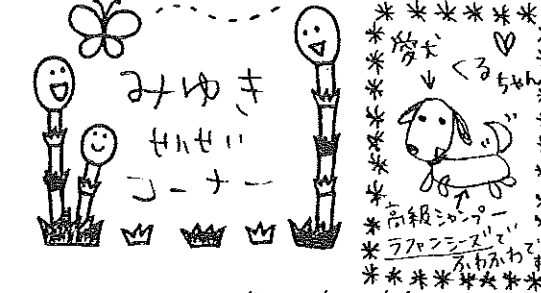 みゆき
せんせい
コーナー
愛犬
くるちゃん
高級シャンプー
ラファンシーズで
ふわふわです